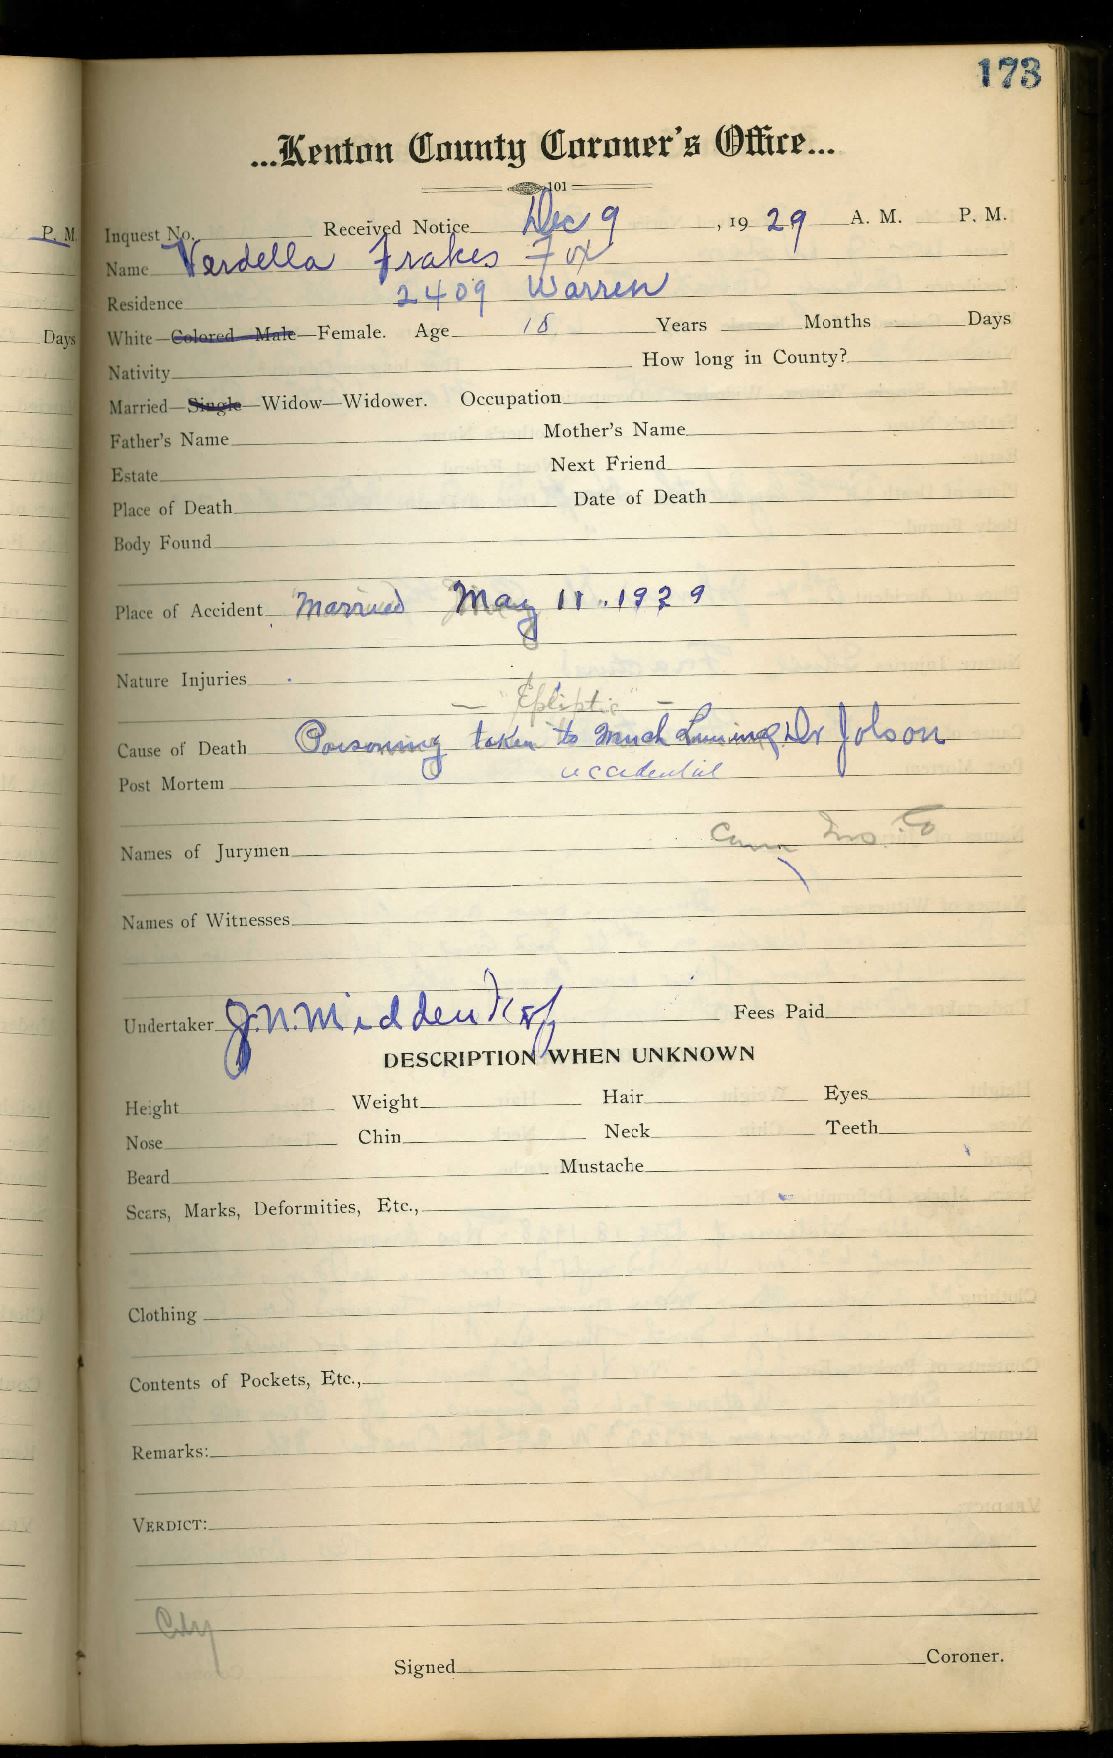 173
...Kenton County Coroner's Office...
101
P. M.
Inquest No. Received Notice Dec 9, 19 29 A. M. P. M.
Name Verdella Frakes Fox
Residence 2409 Warren
Days
White—Colored—Male—Female. Age 18 Years Months Days
Nativity How long in County?
Married—Single—Widow—Widower. Occupation
Father's Name Mother's Name
Estate Next Friend
Place of Death Date of Death
Body Found
Place of Accident Married May 11. 1929
Nature Injuries
— "Epliptic" —
Cause of Death Poisoning taken to much Dr Jolson
Post Mortem accidential
Ins. Co
Names of Jurymen
Names of Witnesses
Undertaker J.N. Middendorf Fees Paid
DESCRIPTION WHEN UNKNOWN
Height Weight Hair Eyes
Nose Chin Neck Teeth
Beard Mustache
Scars, Marks, Deformities, Etc.,
Clothing
Contents of Pockets, Etc.,
Remarks:
VERDICT:
City
Signed Coroner.